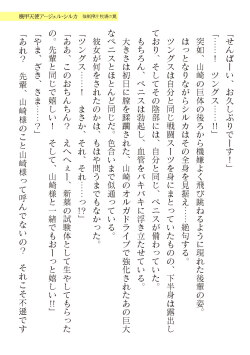 機甲天使アージェル・シルカ
「せんぱーい、お久しぶりでーす！」
「……！　ツングス……!!」
　突如、山崎の巨体の後ろから機嫌よく飛び跳ねるように現れた後輩の姿。
　はっとなりながらシルカはその全身を見据え……絶句する。
　ツングスは自分と同じ戦闘スーツを身にまとっていたものの、下半身は露出し
ており、そしてその陰部には、自分と同じ、ペニスが備わっていた。
　もちろん、ペニスは勃起し、血管をバキバキに浮き立たせている。
　大きさは初日に膣を蹂躙された、山崎のオルガドライブで強化されたあの巨大
なペニスとほとんど同じだ。色合いまで似通っている。
　彼女が何をされたのか、もはや問うまでもなかった。
「ツングス……！　まさか、それは、それは……っ!?」
「ああ、このおちんちん？　えへぇぇ！　新薬の試験体として生やしてもらった
の。先輩と同じで嬉しい！　そして、山崎様と一緒でもおーっと嬉しい!!」
「やま、ざき、さま……？」
「あれ？　先輩、山崎様のこと山崎様って呼んでないの？　それこそ不遜です